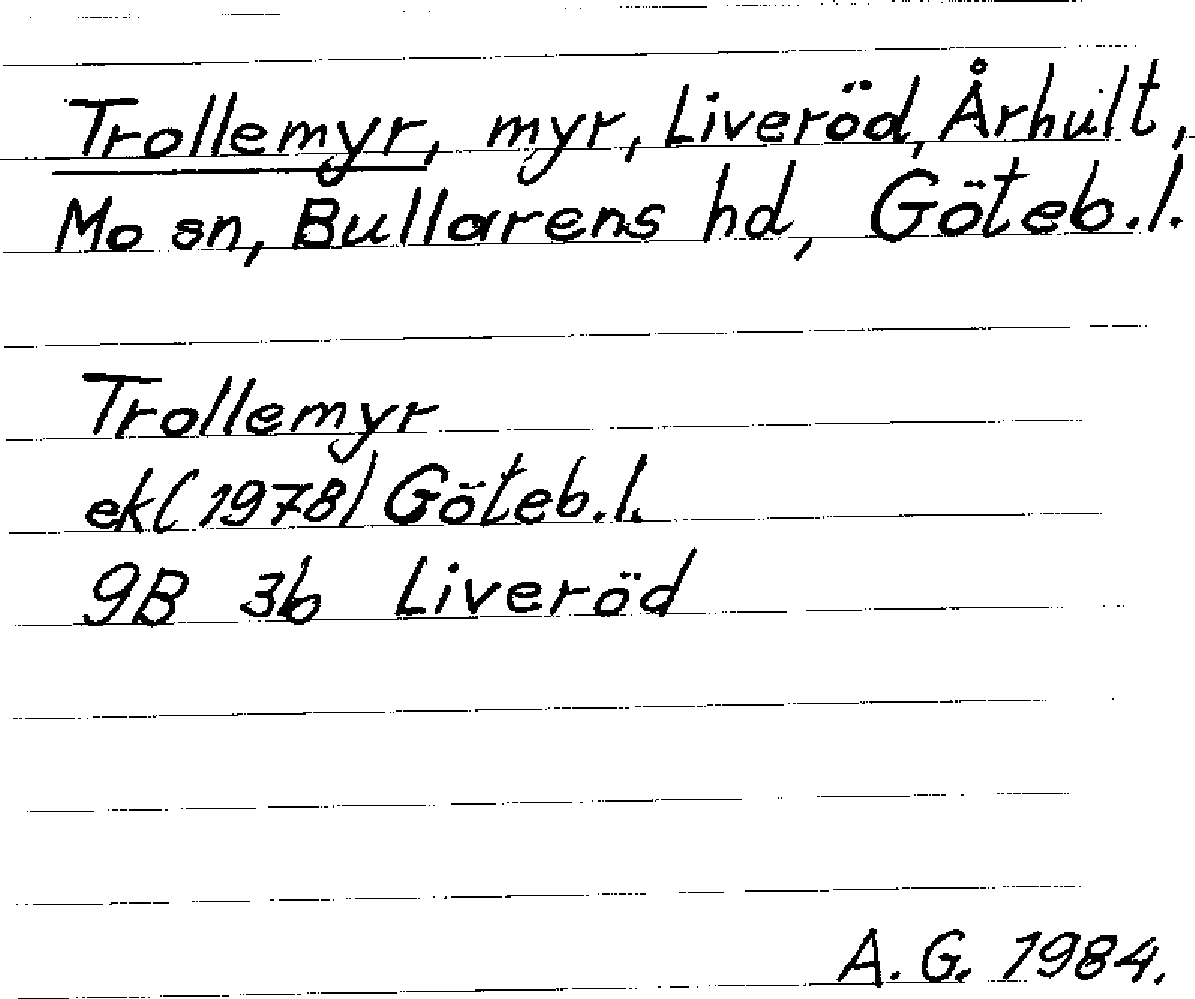 Trollemyr, myr, Liveröd, Århult,
Mo sn, Bullarens hd, Göteb.l.
Trollemyr
ek(1978) Göteb.l.
9B 3b Liveröd
A.G. 1984.